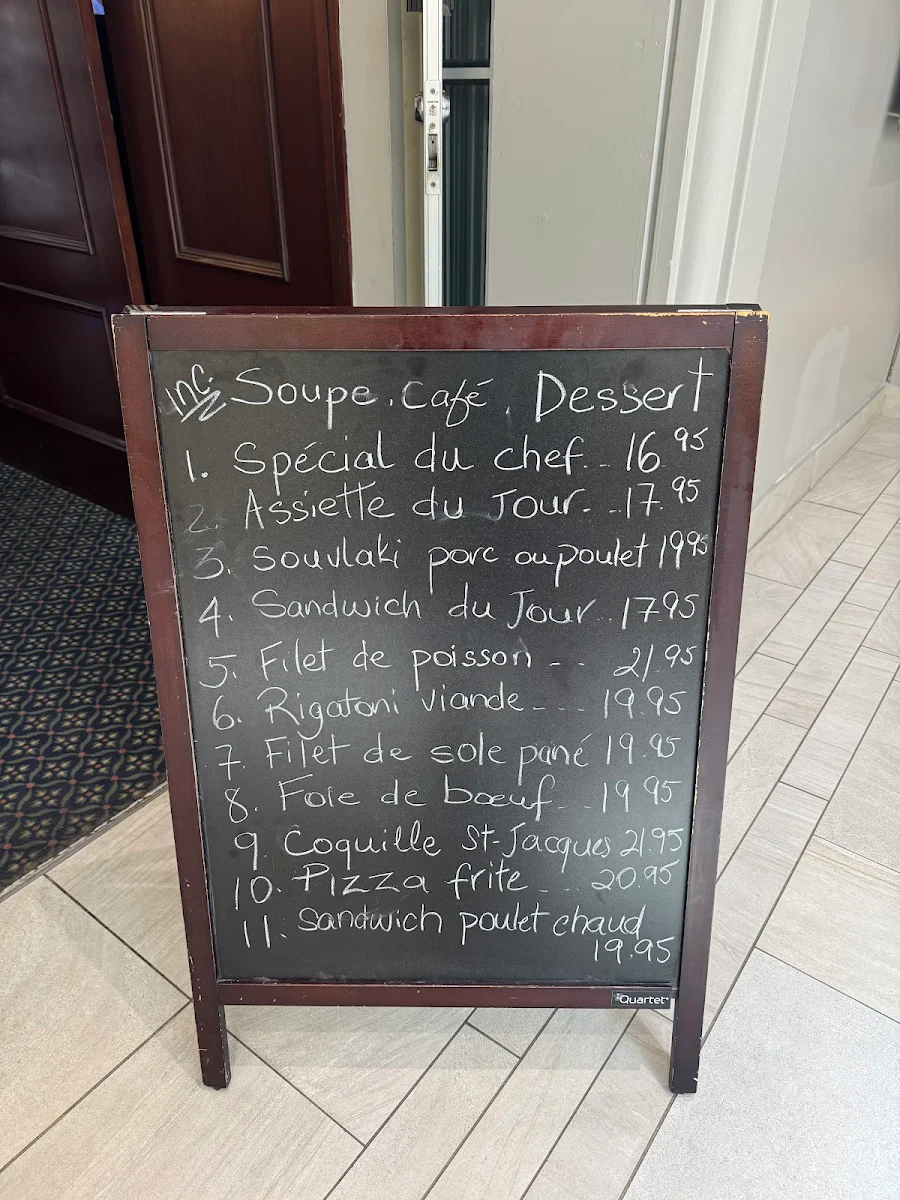 inc. Soupe, Café, Dessert
1. Spécial du chef.. 16.95
2. Assiette du Jour. ..17.95
3. Souvlaki porc ou poulet 19.95
4. Sandwich du Jour.. 17.95
5. Filet de poisson --- 21.95
6. Rigatoni viande.... 19.95
7. Filet de sole pané 19.95
8. Foie de bœuf... 19.95
9. Coquille St-Jacques 21.95
10. Pizza frite .... 20.95
11. Sandwich poulet chaud
19.95
Quartet